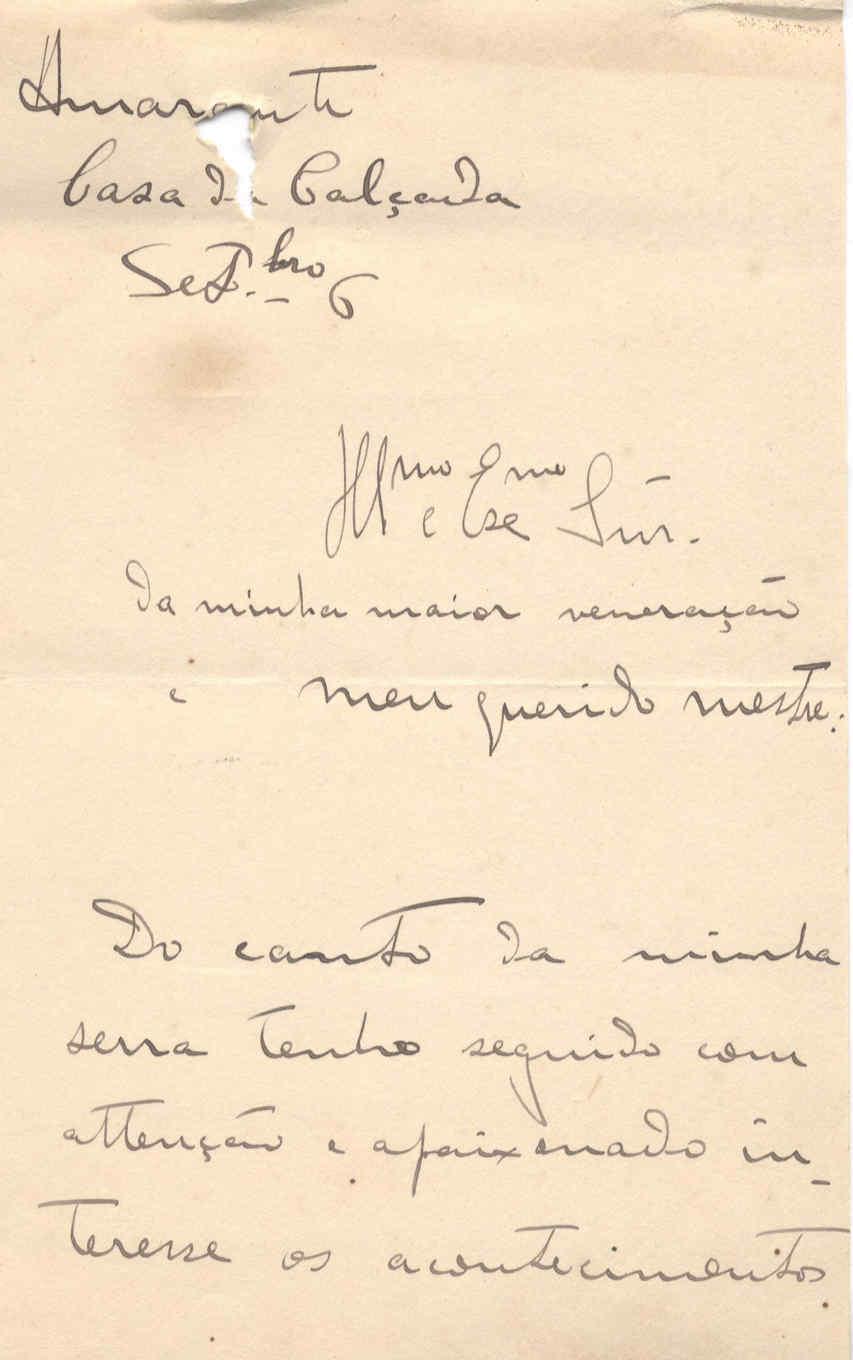 Amarante
Casa da Calçada
Set.bro 6
Illmo e Exmo Snr.
da minha maior veneração
e meu querido mestre:
Do canto da minha
serra tenho seguido com
attenção e apaixonado in-
teresse os acontecimentos